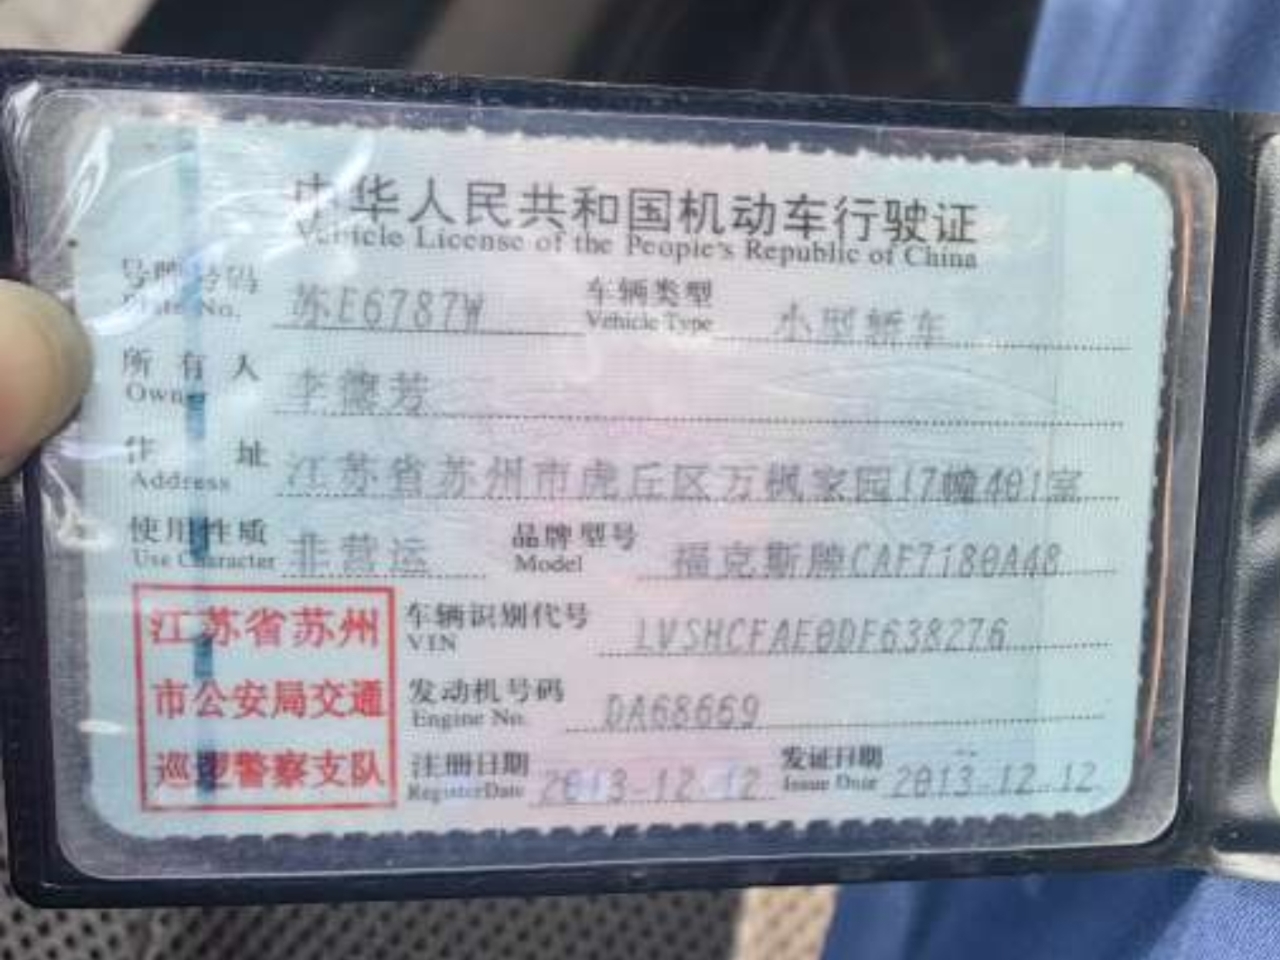 中华人民共和国机动车行驶证
Vehicle License of the People's Republic of China
号牌号码 苏E6787W 车辆类型 小型轿车
Plate No. Vehicle Type
所有人 李德芳
Owner
住址 江苏省苏州市虎丘区万枫家园17幢401室
Address
使用性质 非营运 品牌型号 福克斯牌CAF7180A48
Use Character Model
江苏省苏州
市公安局交通
巡逻警察支队
车辆识别代号 LVSHCFAE0DF638276
VIN
发动机号码 DA68669
Engine No.
注册日期 2013-12-12 发证日期 2013-12-12
Register Date Issue Date